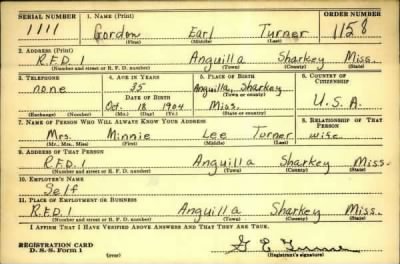 SERIAL NUMBER 1. NAME (Print) ORDER NUMBER
1111 Gordon Earl Turner 1158
(First) (Middle) (Last)
2. ADDRESS (Print)
R.F.D. 1 Anguilla Sharkey Miss.
(Number and street or R. F. D. number) (Town) (County) (State)
3. TELEPHONE 4. AGE IN YEARS 5. PLACE OF BIRTH 6. COUNTRY OF CITIZENSHIP
none 35 Anguilla, Sharkey
DATE OF BIRTH (Town or county)
Oct. 18 1904 Miss. U.S.A.
(Exchange) (Number) (Mo.) (Day) (Yr.) (State or country)
7. NAME OF PERSON WHO WILL ALWAYS KNOW YOUR ADDRESS 8. RELATIONSHIP OF THAT PERSON
Mrs. Minnie Lee Turner wife
(Mr., Mrs., Miss) (First) (Middle) (Last)
9. ADDRESS OF THAT PERSON
R.F.D. 1 Anguilla Sharkey Miss.
(Number and street or R. F. D. number) (Town) (County) (State)
10. EMPLOYER'S NAME
Self
11. PLACE OF EMPLOYMENT OR BUSINESS
R.F.D. 1 Anguilla Sharkey Miss.
(Number and street or R. F. D. number) (Town) (County) (State)
I AFFIRM THAT I HAVE VERIFIED ABOVE ANSWERS AND THAT THEY ARE TRUE.
REGISTRATION CARD G E Turner
D. S. S. Form 1 (over) (Registrant's signature)